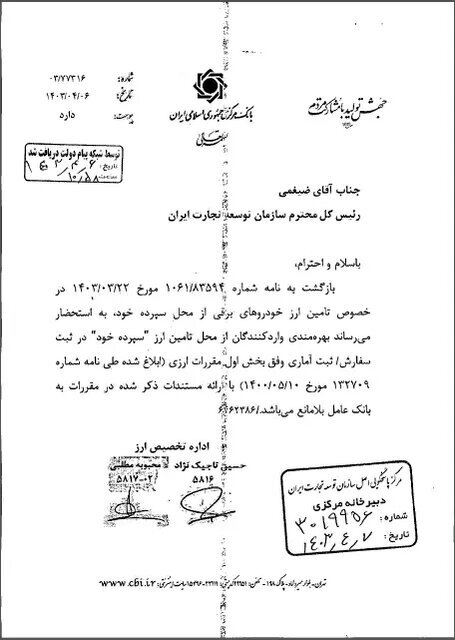 جهش تولید با مشارکت مردم
بانک مرکزی جمهوری اسلامی ایران
بسمه تعالی
شماره: ۰۳/۷۷۳۱۶
تاریخ: ۱۴۰۳/۰۴/۰۶
پیوست: دارد
توسط شبکه پیام دولت دریافت شد
تاریخ:
ساعت:
جناب آقای ضیغمی
رئیس کل محترم سازمان توسعه تجارت ایران
باسلام و احترام،
بازگشت به نامه شماره ۱۰۶۱/۸۳۵۹۴ مورخ ۱۴۰۳/۰۳/۲۲ در
خصوص تامین ارز خودروهای برقی از محل سپرده خود، به استحضار
می‌رساند بهره‌مندی واردکنندگان از محل تامین ارز "سپرده خود" در ثبت
سفارش/ ثبت آماری وفق بخش اول مقررات ارزی (ابلاغ شده طی نامه شماره
۱۳۲۷۰۹ مورخ ۱۴۰۰/۰۵/۱۰) با ارائه مستندات ذکر شده در مقررات به
بانک عامل بلامانع می‌باشد./۶۲۳۸۶
اداره تخصیص ارز
حسین تاجیک نژاد محبوبه مطلبی
۵۸۱۶ ۵۸۱۷-۰۲
مرکز پاسخگویی اصل سازمان توسعه تجارت ایران
دبیرخانه مرکزی
شماره: ۳۰۱۹۹۵۶
تاریخ: ۱۴۰۳،۴،۷
www.cbi.ir